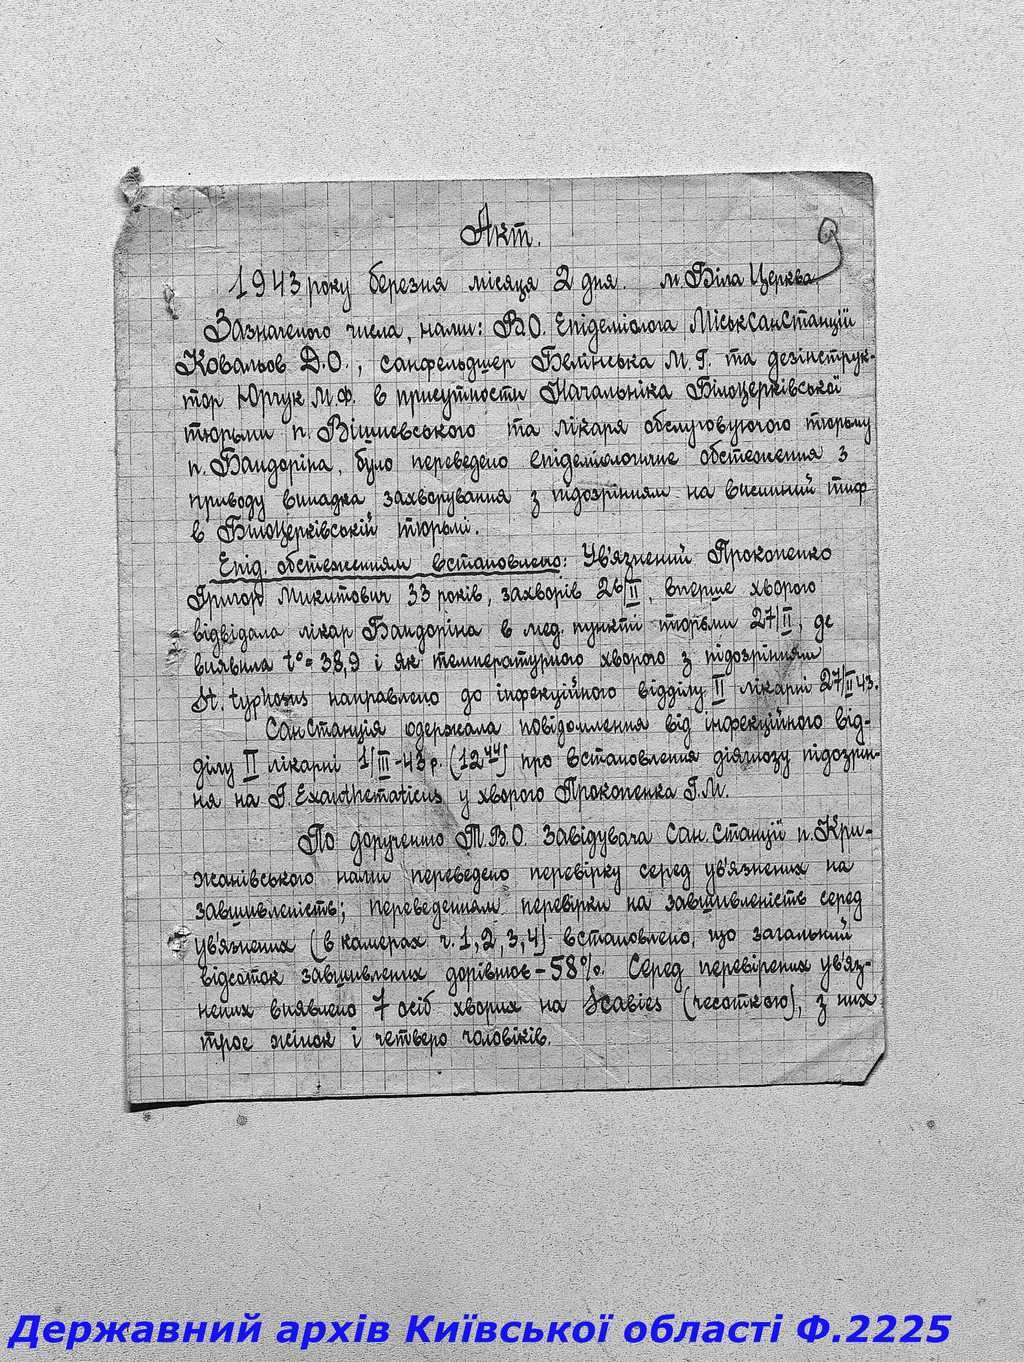 Акт.
9
1943 року березня місяця 2 дня. м. Біла Церква
Зазначеного числа, нами: В.О. Епідеміолога МіськСанСтанції
Ковальов Д.О., санфельдшер Белінська М.Г. та дезінструк-
тор Юрчук М.Ф. в присутности Начальніка Білоцерківської
тюрьми п. Вішневського та лікаря обслуговуючого тюрьму
п. Бандоріна, було переведено епідеміологичне обстеження з
приводу випадка захворування з підозрінням на висипний тиф
в Білоцерківській тюрьмі.
Епід. обстеженням встановлено: Ув'язнений Прокопенко
Григор Микитович 33 років, захворів 26/II, вперше хворого
відвідала лікар Бандоріна в мед. пункті тюрьми 27/II, де
виявила t°=38,9 і як температурного хворого з підозрінням
St. typhosus направлено до інфекційного відділу II лікарні 27/II 43.
СанСтанція одержала повідомлення від інфекційного від-
ділу II лікарні 1/III-43 р. (12⁴⁴) про встановлення діягнозу підозрін-
ня на T. Exanthematicus у хворого Прокопенка Г.М.
По дорученню Т.В.О. Завідувача Сан.Станції п. Кри-
жанівського нами переведено перевірку серед ув'язнених на
завшивленість; переведенням перевірки на завшивленість серед
ув'язнених (в камерах ч. 1, 2, 3, 4) встановлено, що загальний
відсоток завшивлених дорівнює - 58%. Серед перевірених ув'яз-
нених виявлено 7 осіб хворих на Scabies (чесоткою), з них
троє жінок і четверо чоловіків.
Державний архів Київської області Ф.2225